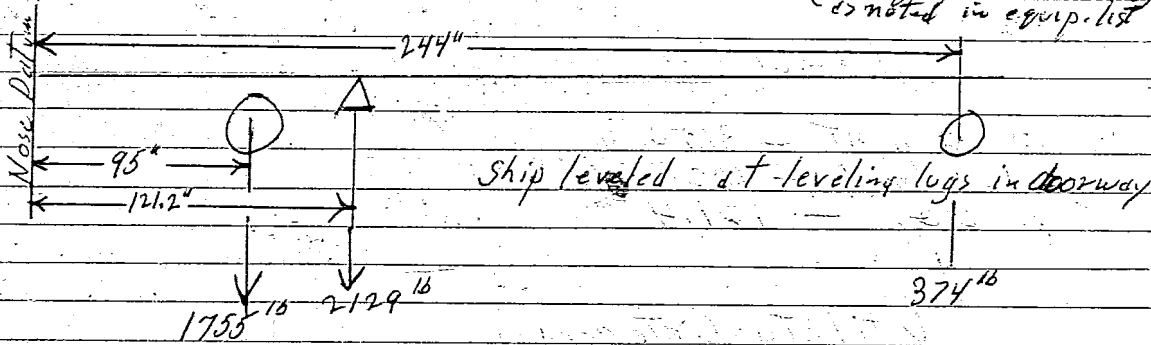 as noted in equip. list
244"
Nose Datum
95"
ship leveled at leveling lugs in doorway
121.2"
1755 lb
2129 lb
374 lb